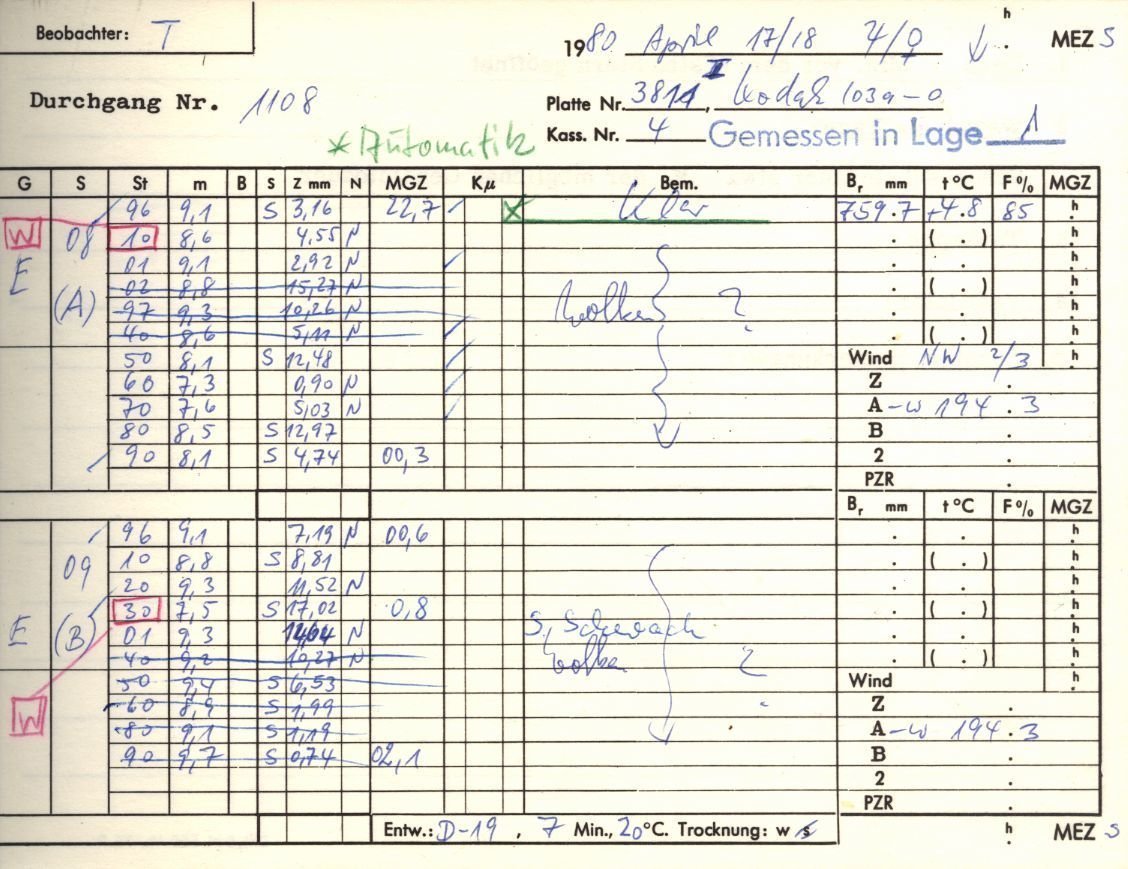 Beobachter: T
1980 April 17/18 4/♀ h . MEZ S
Durchgang Nr. 1108
Platte Nr. 3811 II, Kodak 103a-O
Kass. Nr. 4 Gemessen in Lage 1
* Automatik
G S St m B S Z mm N MGZ Kμ Bem. Br mm t°C F% MGZ
96 9,1 S 3,16 22,7 × Klar 759.7 +4.8 85 h
W 08 10 8,6 4,55 N . ( . ) h
E 01 9,1 2,92 N . . h
02 8,8 15,27 N . ( . ) h
(A) 97 9,3 10,26 N Wolken ? . . h
40 8,6 5,11 N . ( . ) h
50 8,1 S 12,48 Wind NW 2/3 h
60 7,3 0,90 N Z .
70 7,6 5,03 N A -w 194.3
80 8,5 S 12,97 B .
90 8,1 S 4,74 00,3 2 .
PZR .
Br mm t°C F% MGZ
96 9,1 7,19 N 00,6 . . h
09 10 8,8 S 8,81 . ( . ) h
20 9,3 11,52 N . . h
30 7,5 S 17,02 0,8 . ( . ) h
E (B) 01 9,3 N S, Schwach . . h
40 9,2 10,27 N Wolken ? . ( . ) h
50 9,4 S 6,53 Wind h
W 60 8,9 S 1,99 Z .
80 9,1 S 1,19 A -w 194.3
90 9,7 S 0,74 02,1 B .
2 .
PZR .
Entw.: D-19, 7 Min., 20°C. Trocknung: w s h . MEZ S